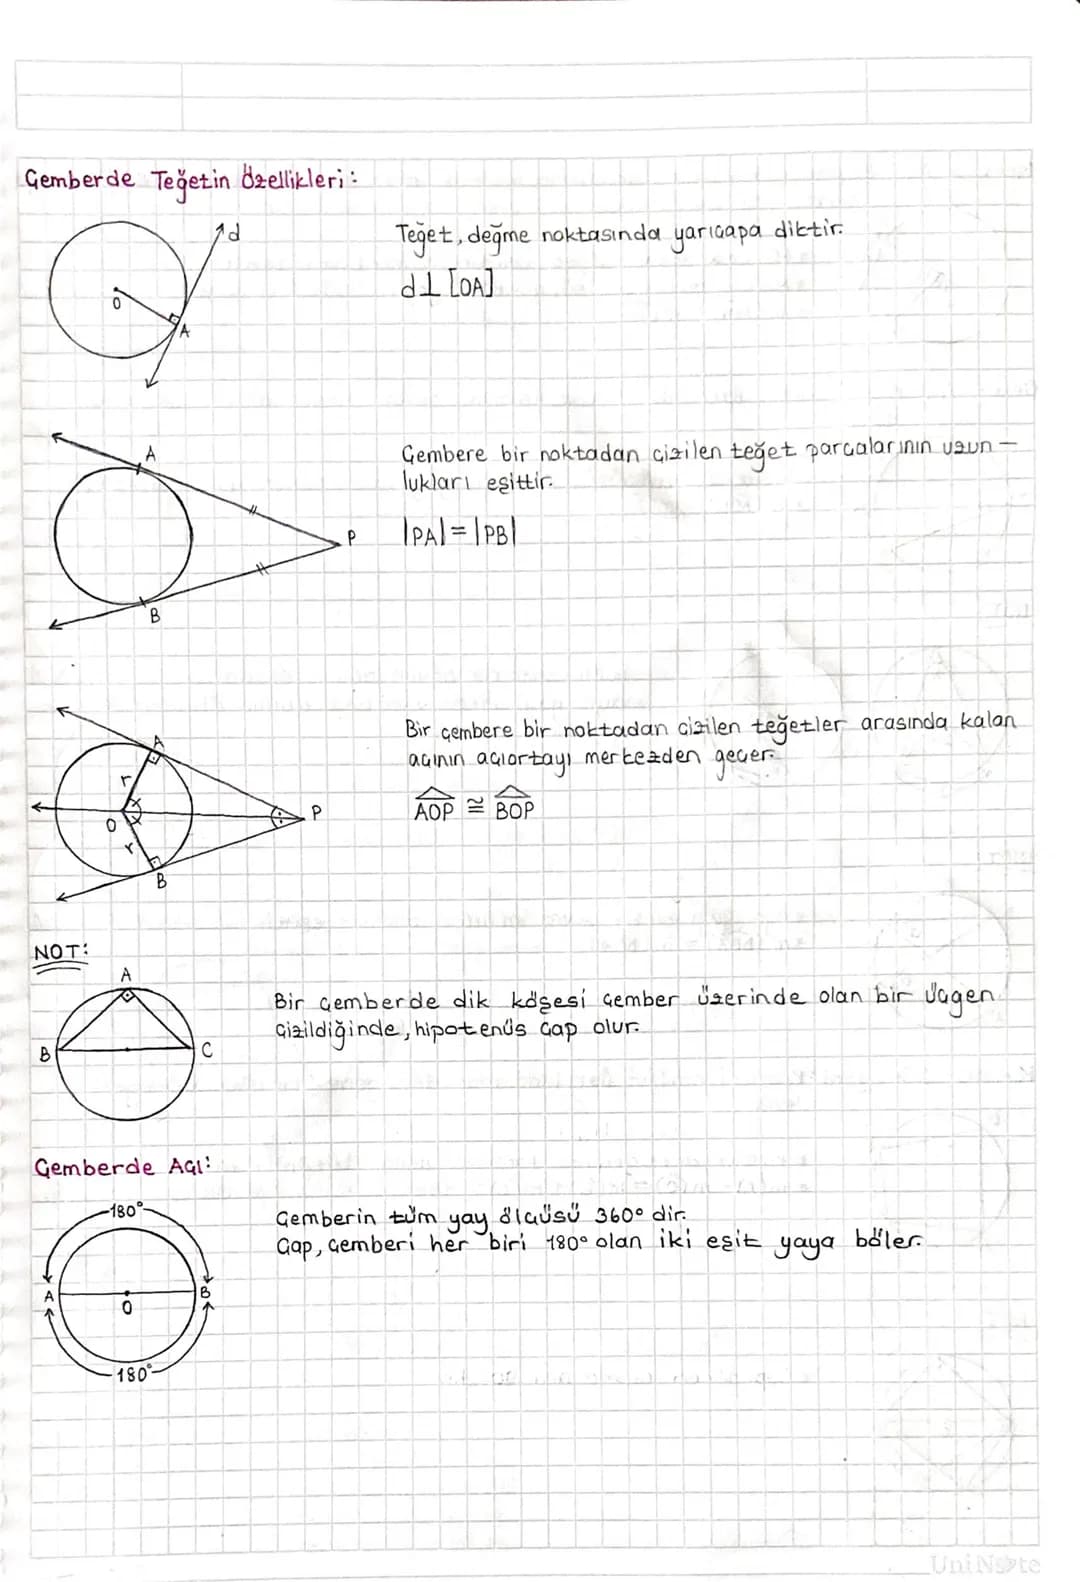 Çemberde Teğetin Özellikleri:
d
O
A
Teğet, değme noktasında yarıçapa diktir.
d⊥[OA]
A
P
B
Çembere bir noktadan çizilen teğet parçalarının uzun-
lukları eşittir.
|PA|=|PB|
A
r
O
r
P
B
Bir çembere bir noktadan çizilen teğetler arasında kalan
açının açıortayı merkezden geçer.
AOP ≅ BOP
NOT:
A
B
C
Bir çemberde dik köşesi çember üzerinde olan bir üçgen
çizildiğinde, hipotenüs çap olur.
Çemberde Açı:
180°
A
B
O
180°
Çemberin tüm yay ölçüsü 360° dir.
Çap, çemberi her biri 180° olan iki eşit yaya böler.
UniNote